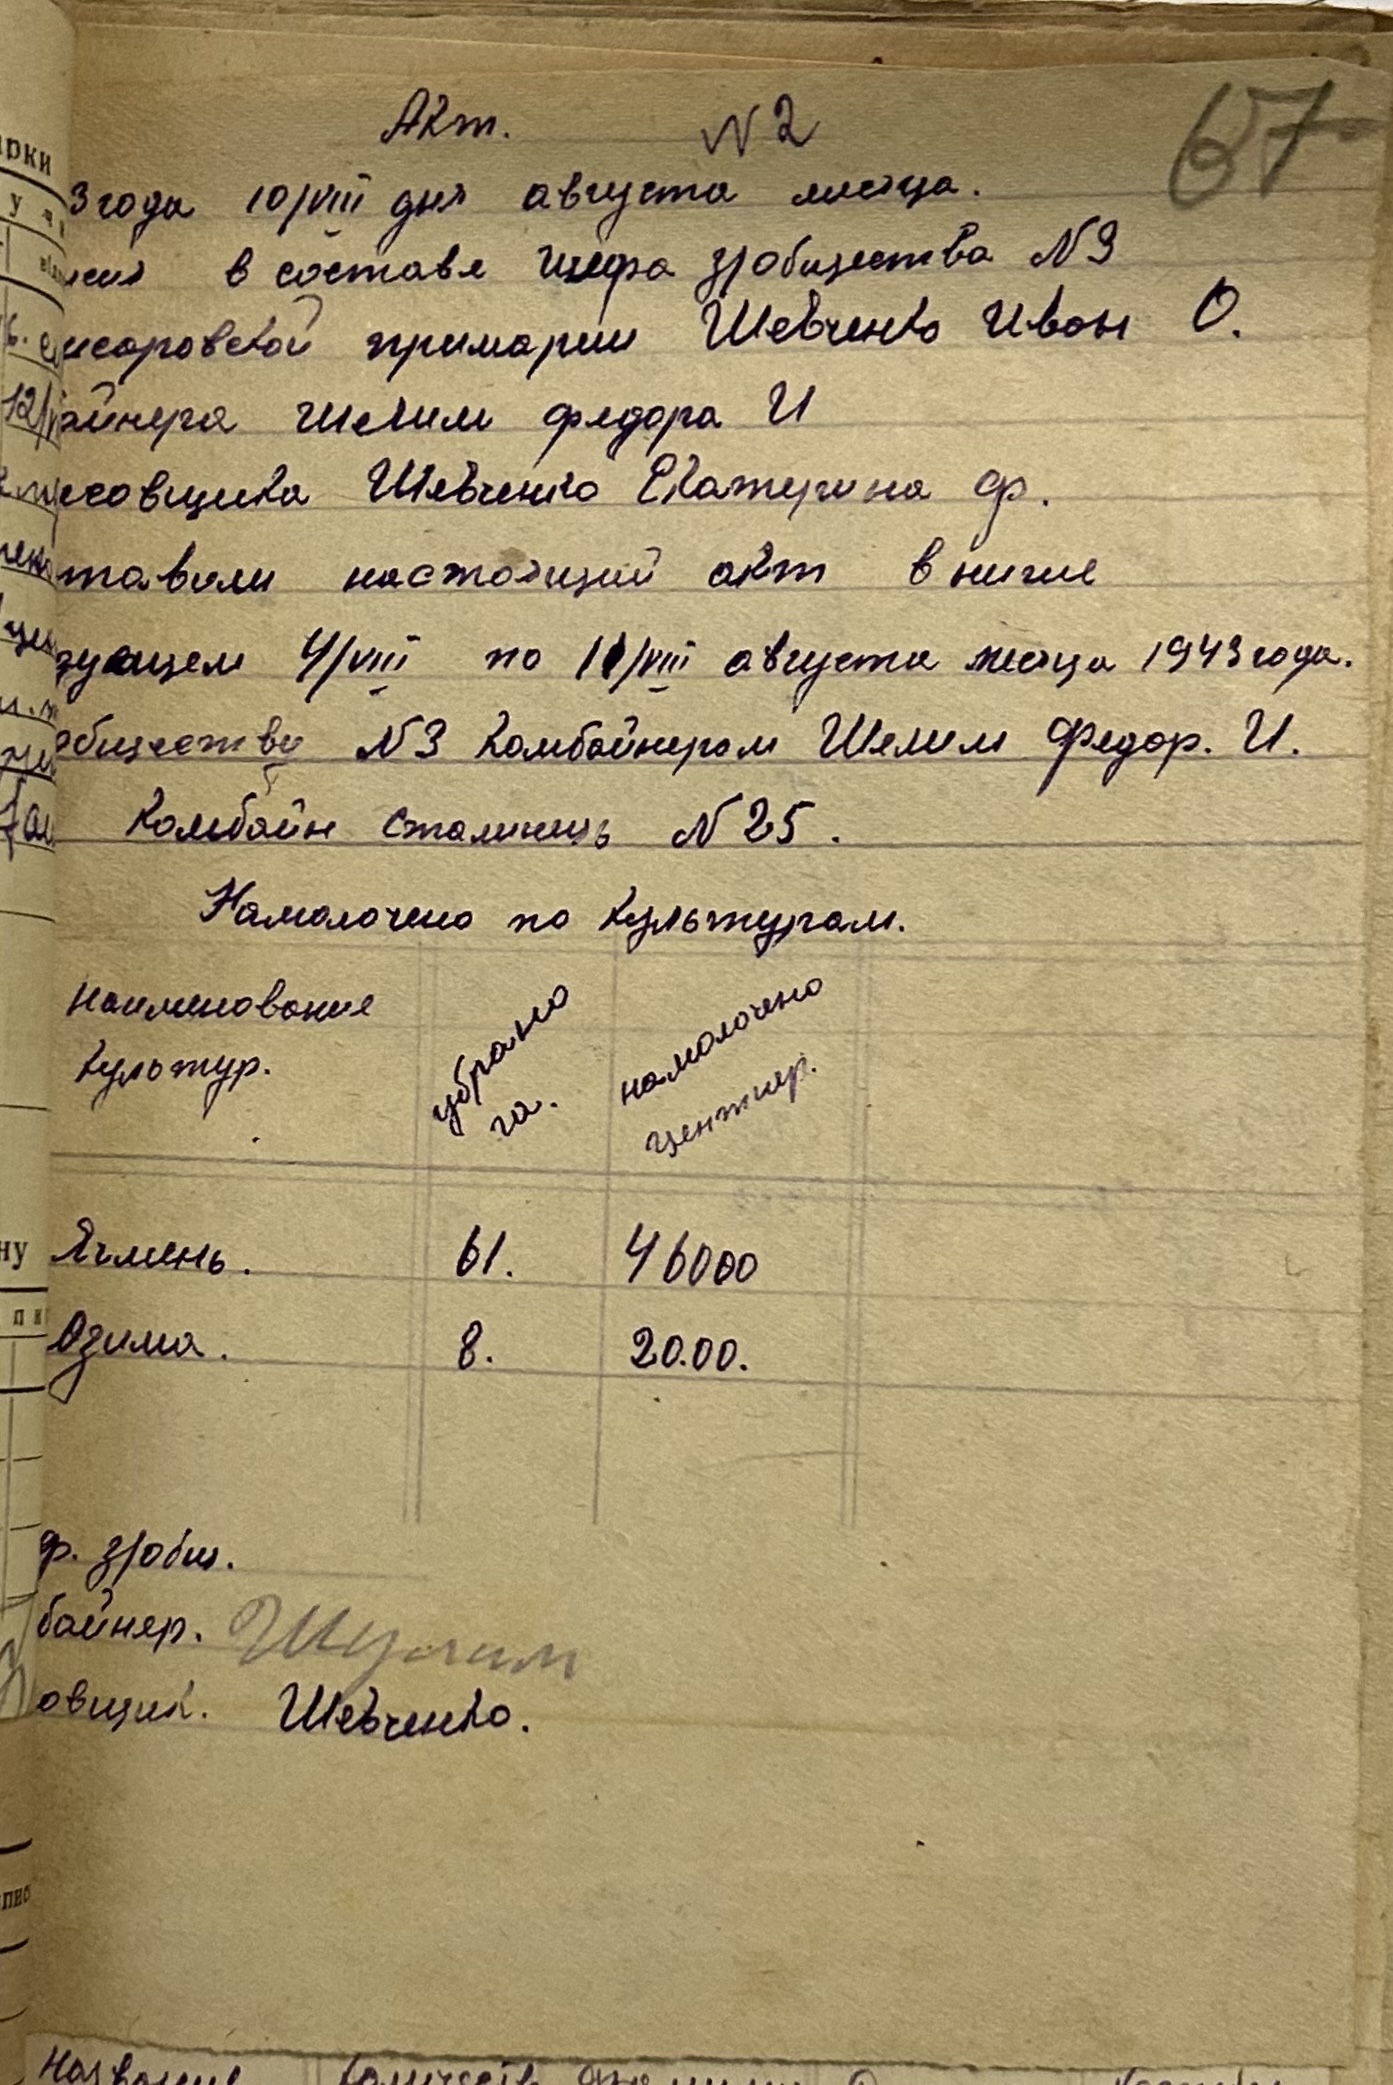 Акт. N 2
67
3 года 10/VIII дня августа месяца.
в составе шефа з/общества N3
примарии Шевченко Иван О.
айнера Шелим Федора И
совщика Шевченко Екатерина Ф.
тавили настоящий акт в ниже
дующем 4/VIII по 11/VIII августа месяца 1943 года.
обществе N3 комбайнером Шелим Федор. И.
Комбайн сталинець N 25.
Намолочено по культурам.
наименование культур. убрано га. намолочено центнер.
Ячмень. 61. 46000
Озима. 8. 20.00.
ф. з/общ.
байнер. Шулим
овщик. Шевченко.
Название